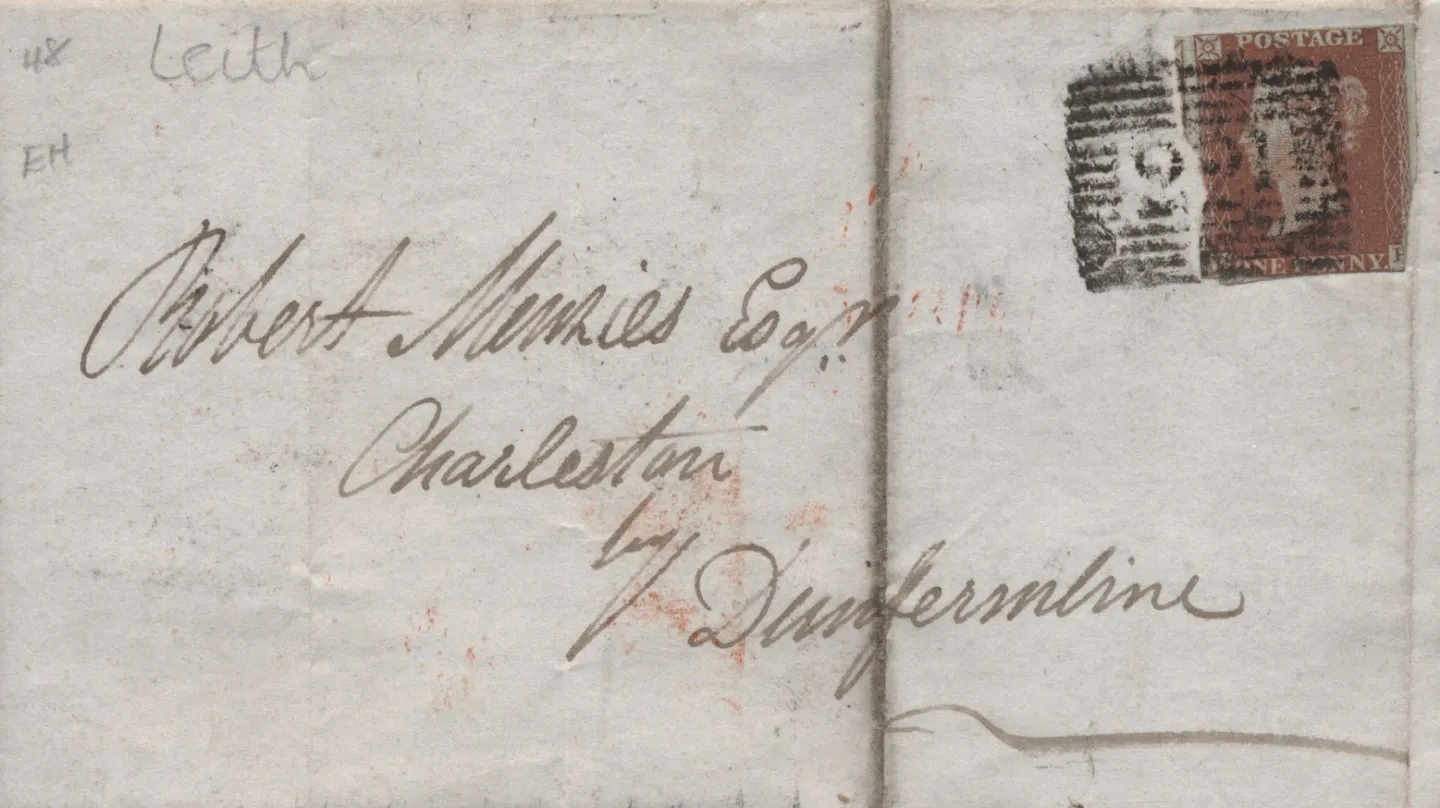 48
Leith
EH
POSTAGE
ONE PENNY
Robert Menzies Esqr.
Charleston
by
Dunfermline